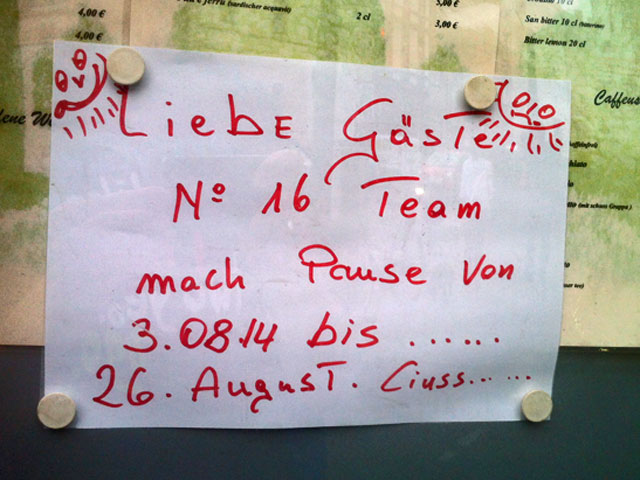 4,00 €
4,00 €
(sardischer acquavit)
2 cl
5,00 €
3,00 €
San bitter 10 cl
Bitter lemon 20 cl
Liebe Gäste
Nº 16 Team
mach Pause von
3.08.14 bis ......
26. August. Ciuss......